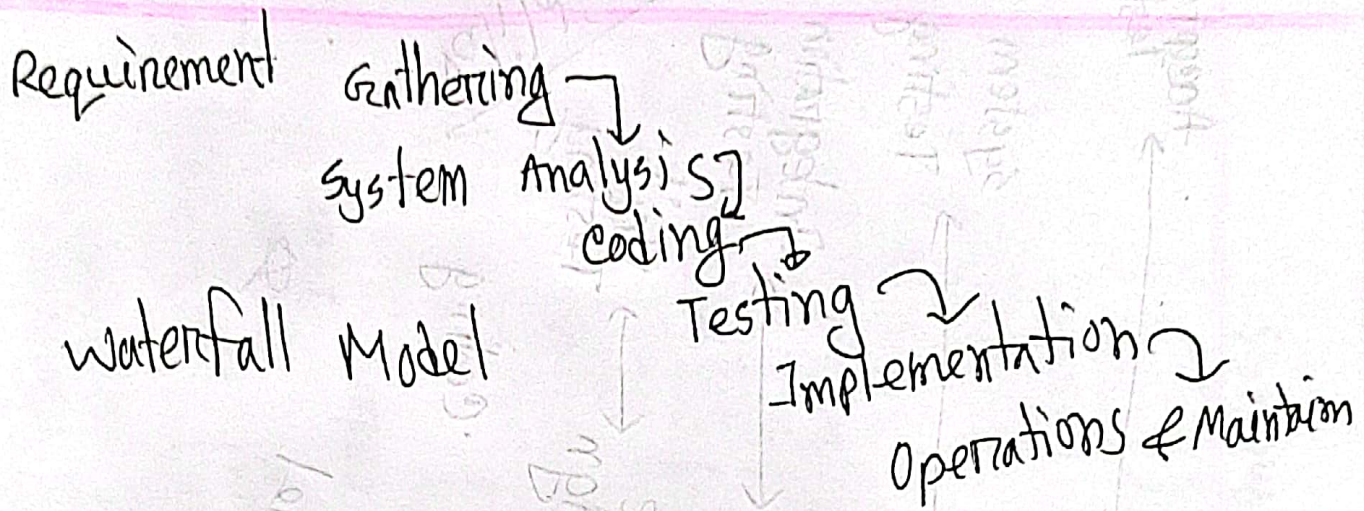 Requirement Gathering
System Analysis
Coding
Testing
Waterfall Model
Implementation
Operations & Maintain